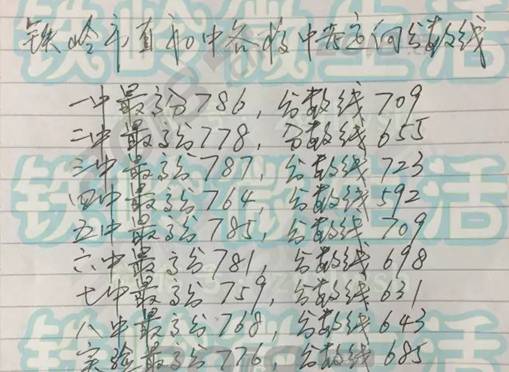 铁岭市直初中各校中考定向分数线
一中最高分786，分数线709
二中最高分778，分数线655
三中最高分787，分数线723
四中最高分764，分数线592
五中最高分785，分数线709
六中最高分781，分数线698
七中最高分759，分数线631
八中最高分768，分数线643
实验最高分776，分数线685
铁岭微生活